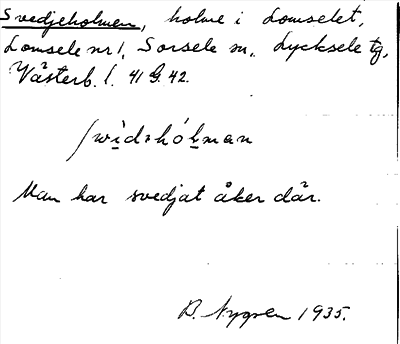 Svedjeholmen, holme i Lomselet,
Lomsele nr 1, Sorsele sn., Lycksele tg,
Västerb. l. 41 G. 42.
Man har svedjat åker där.
B. Nygren 1935.